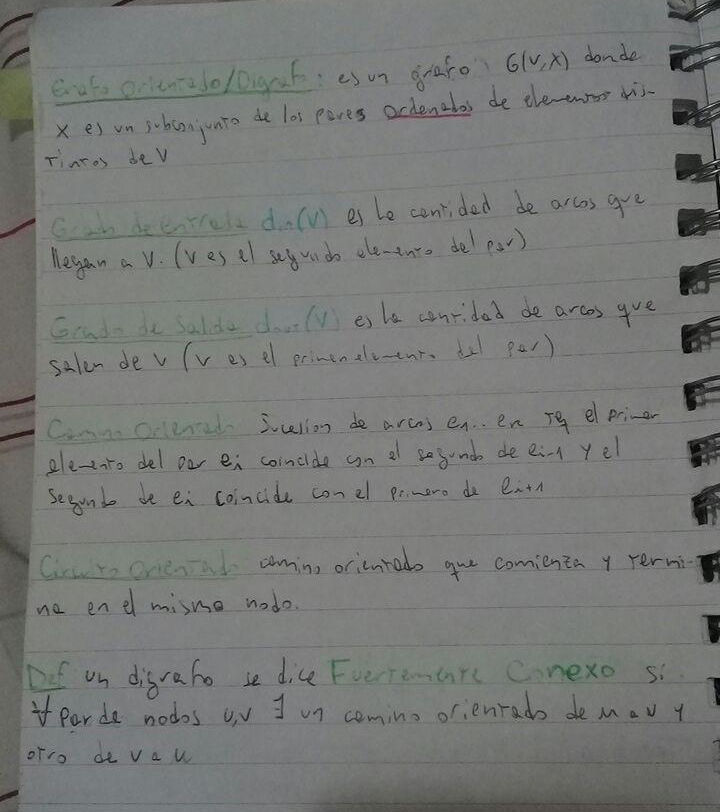 Grafo Orientado/Digrafo: es un grafo G(V,X) donde
X es un subconjunto de los pares ordenados de elementos dis-
tintos de V
Grado de entrada din(V) es la cantidad de arcos que
llegan a V. (V es el segundo elemento del par)
Grado de Salida dout(V) es la cantidad de arcos que
salen de V (V es el primer elemento del par)
Camino Orientado Sucesion de arcos e1... ek tq el primer
elemento del par ei coincide con el segundo de ei-1 y el
segundo de ei coincide con el primero de ei+1
Circuito Orientado camino orientado que comienza y termi-
na en el mismo nodo.
Def un digrafo se dice Fuertemente Conexo si
∀ Par de nodos u,v ∃ un camino orientado de u a v y
otro de v a u